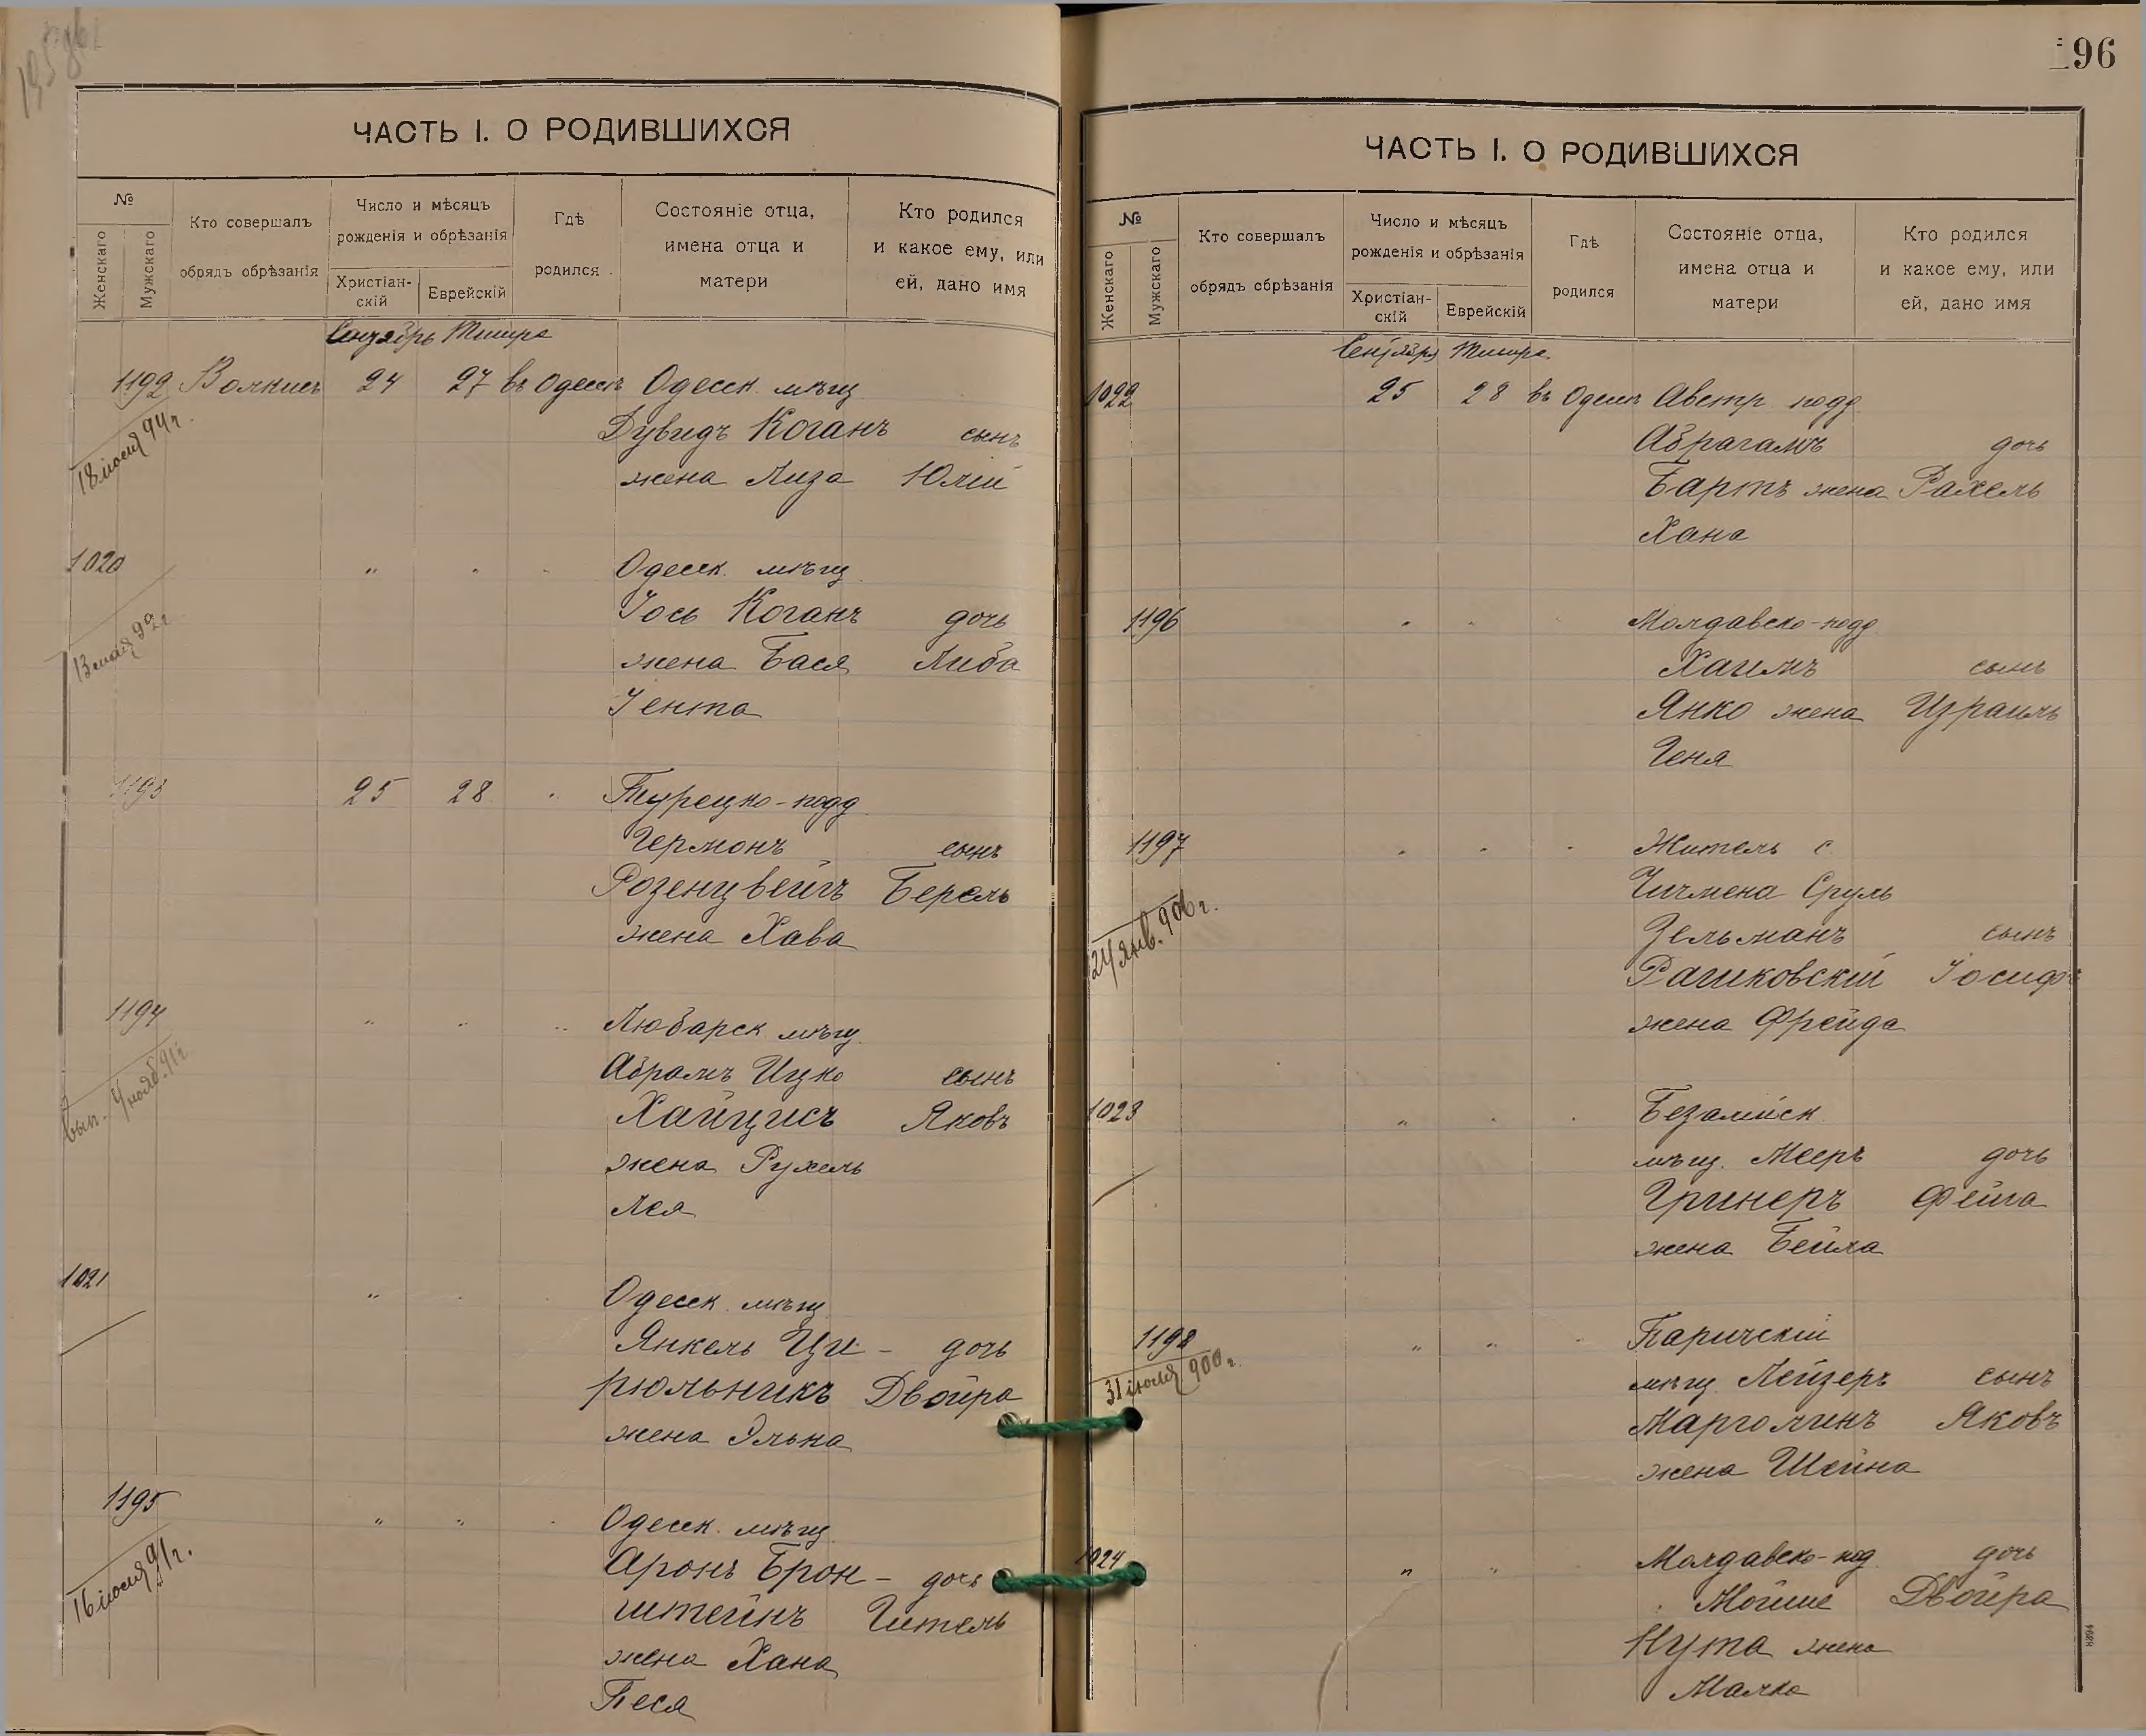 196
ЧАСТЬ I. О РОДИВШИХСЯ
№
Женскаго
Мужскаго
Кто совершалъ
обрядъ обрѣзанія
Число и мѣсяцъ
рожденія и обрѣзанія
Христіан-
скій
Еврейскій
Гдѣ
родился
Состояніе отца,
имена отца и
матери
Кто родился
и какое ему, или
ей, дано имя
Сентябрь Тишре
1192 24 27 въ Одессѣ Одесск. мѣщ
Дувидъ Коганъ сынъ
жена Лиза Юлій
18 іюля 94 г.
1020 " " Одесск. мѣщ.
Іось Коганъ дочь
жена Бася Либа
Іента
13 мая 99 г
1193 25 28 Турецко-подд
Германъ сынъ
Розенцвейгъ Берель
жена Хава
1194 " " Любарск мѣщ.
Абрамъ Ицко сынъ
Хайцисъ Яковъ
жена Рухель
Лея
вып. 4 нояб. 91 г
1021 " Одесск. мѣщ
Янкель Ци- дочь
рюльникъ Двойра
жена Элька
1195 " " Одесск. мѣщ
Аронъ Брон- дочь
штейнъ Гитель
жена Хана
Песя
16 іюля 91 г.
ЧАСТЬ I. О РОДИВШИХСЯ
№
Женскаго
Мужскаго
Кто совершалъ
обрядъ обрѣзанія
Число и мѣсяцъ
рожденія и обрѣзанія
Христіан-
скій
Еврейскій
Гдѣ
родился
Состояніе отца,
имена отца и
матери
Кто родился
и какое ему, или
ей, дано имя
Сентябрь Тишре
1022 25 28 въ Одессѣ Австр. подд
Абрагамъ дочь
Бартъ жена Рахель
Хана
1196 Молдавско-подд
Хаимъ сынъ
Янко жена Израиль
Геня
1197 Житель с.
Сруль
Зельманъ сынъ
Рашковскій Іосифъ
жена Фрейда
24 янв. 906 г.
1023 "
мѣщ. Мееръ дочь
Гринеръ Фейга
жена Бейла
1198 " " Паричскій
мѣщ. Лейзеръ сынъ
Марголинъ Яковъ
жена Шейна
31 іюля 900 г.
1024 " " Молдавско-под дочь
Мойше Двойра
Кута жена
Малка